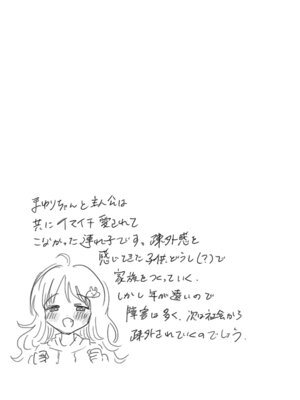 まゆりちゃんと主人公は
共にイマイチ愛されて
こなかった連れ子です。疎外感を
感じてきた子供どうし(?)で
家族をつくっていく。
しかし年が違いので
障害は多く、次は社会から
疎外されていくのでしょう。